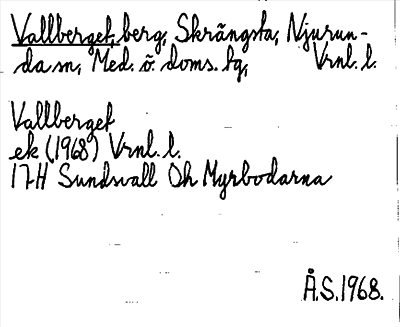 Vallberget, berg, Skrängsta, Njurun-
da sn, Med. ö. doms. tg, Vrnl. l.
Vallberget
ek (1968) Vrnl. l.
17H Sundsvall Oh Myrbodarna
Å.S. 1968.